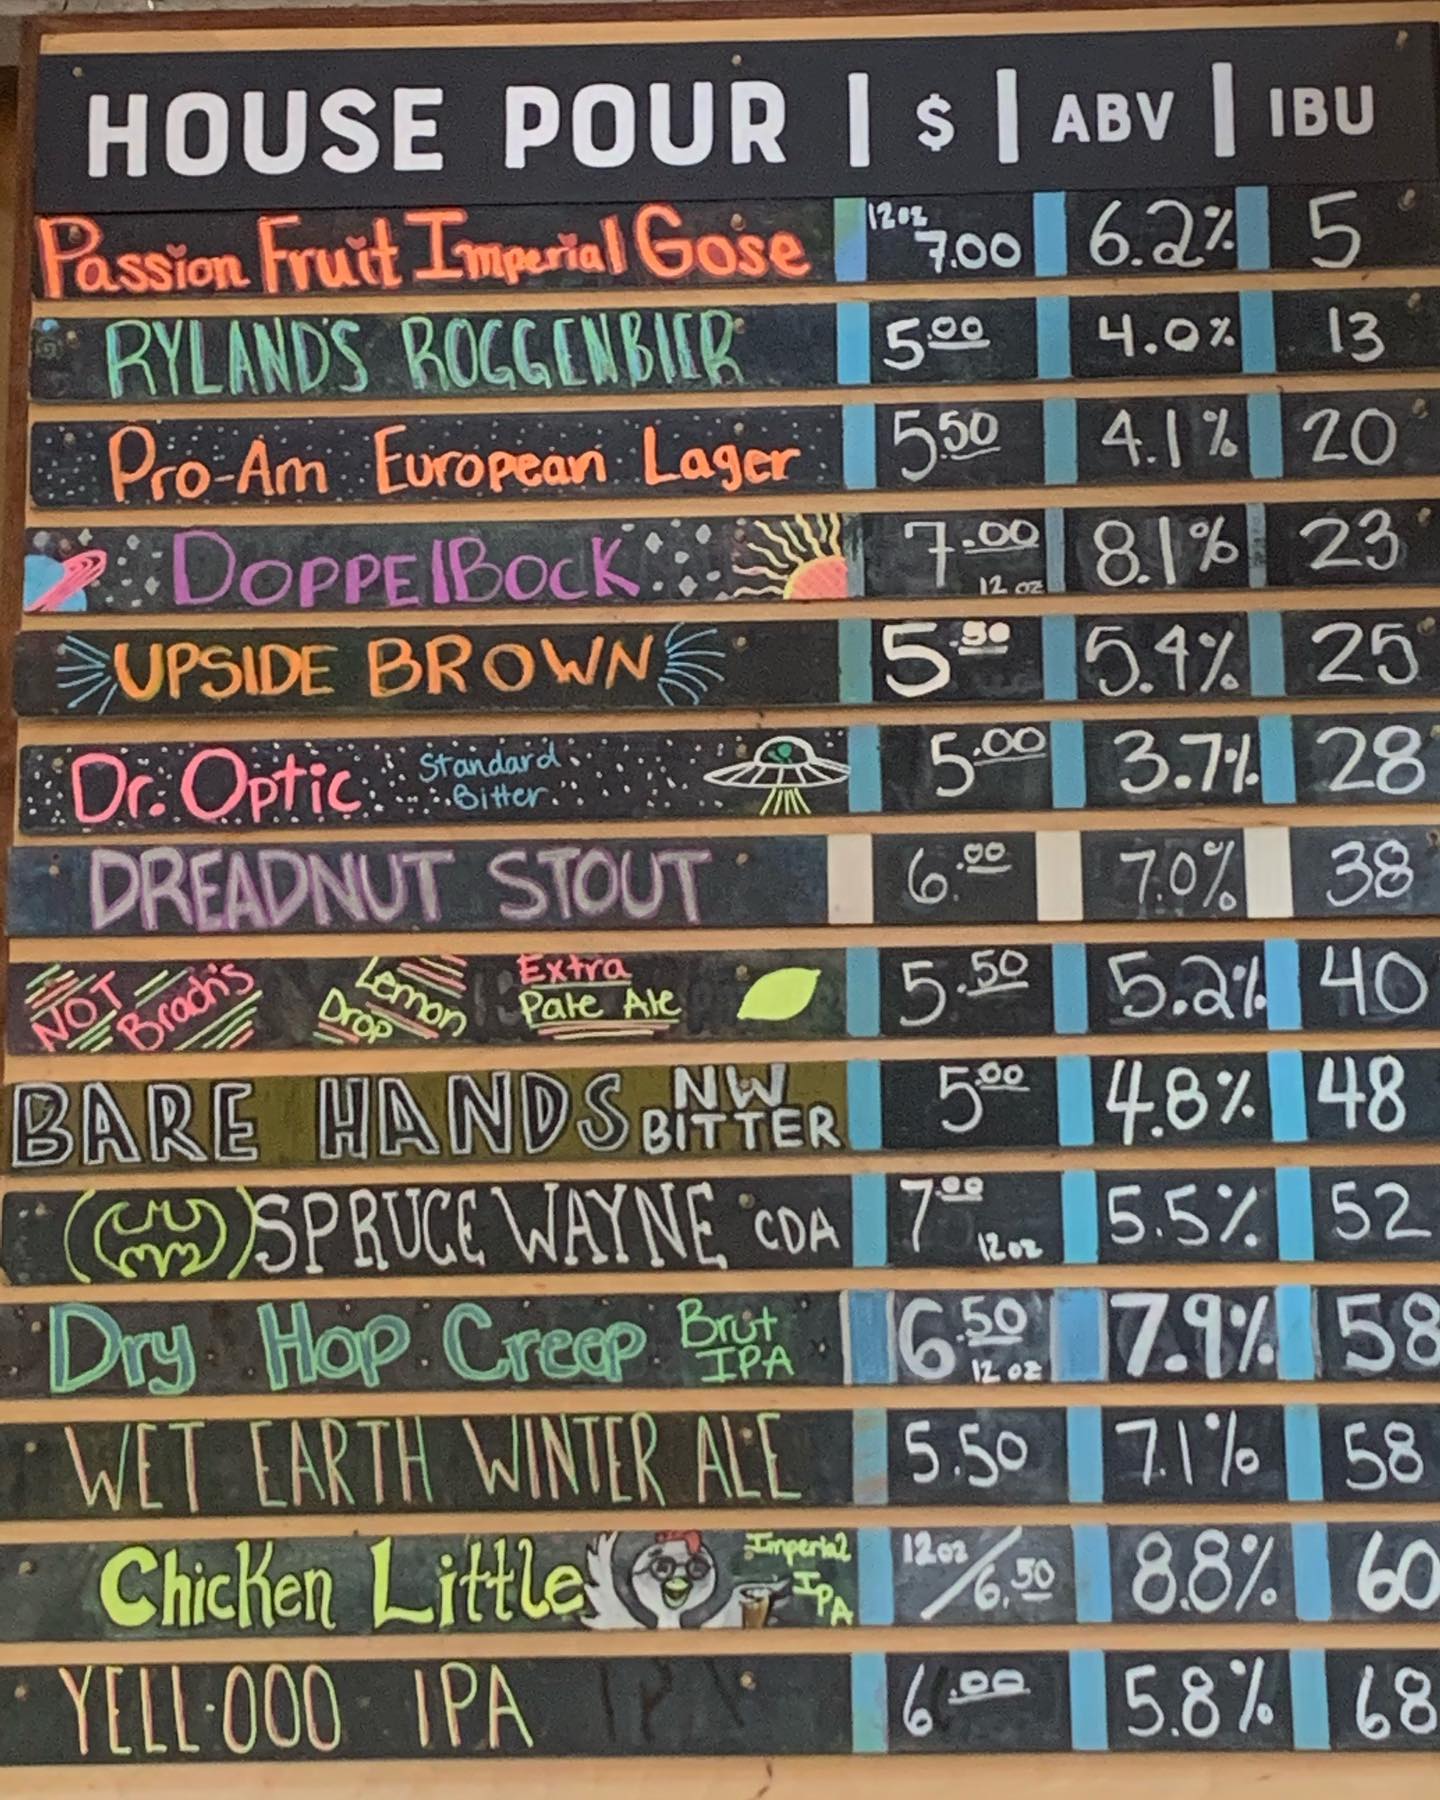 HOUSE POUR | $ | ABV | IBU
Passion Fruit Imperial Gose 12oz 7.00 6.2% 5
RYLAND'S ROGGENBIER 5.00 4.0% 13
Pro-Am European Lager 5.50 4.1% 20
DOPPElBOCK 7.00 12 oz 8.1% 23
UPSIDE BROWN 5.50 5.4% 25
Dr. Optic Standard Bitter 5.00 3.7% 28
DREADNUT STOUT 6.00 7.0% 38
NOT Brach's Lemon Drop Extra Pale Ale 5.50 5.2% 40
BARE HANDS NW BITTER 5.00 4.8% 48
SPRUCE WAYNE CDA 7.00 12oz 5.5% 52
Dry Hop Creep Brut IPA 6.50 12 oz 7.9% 58
WET EARTH WINTER ALE 5.50 7.1% 58
Chicken Little Imperial IPA 12oz/6.50 8.8% 60
YELL·OOO IPA 6.00 5.8% 68